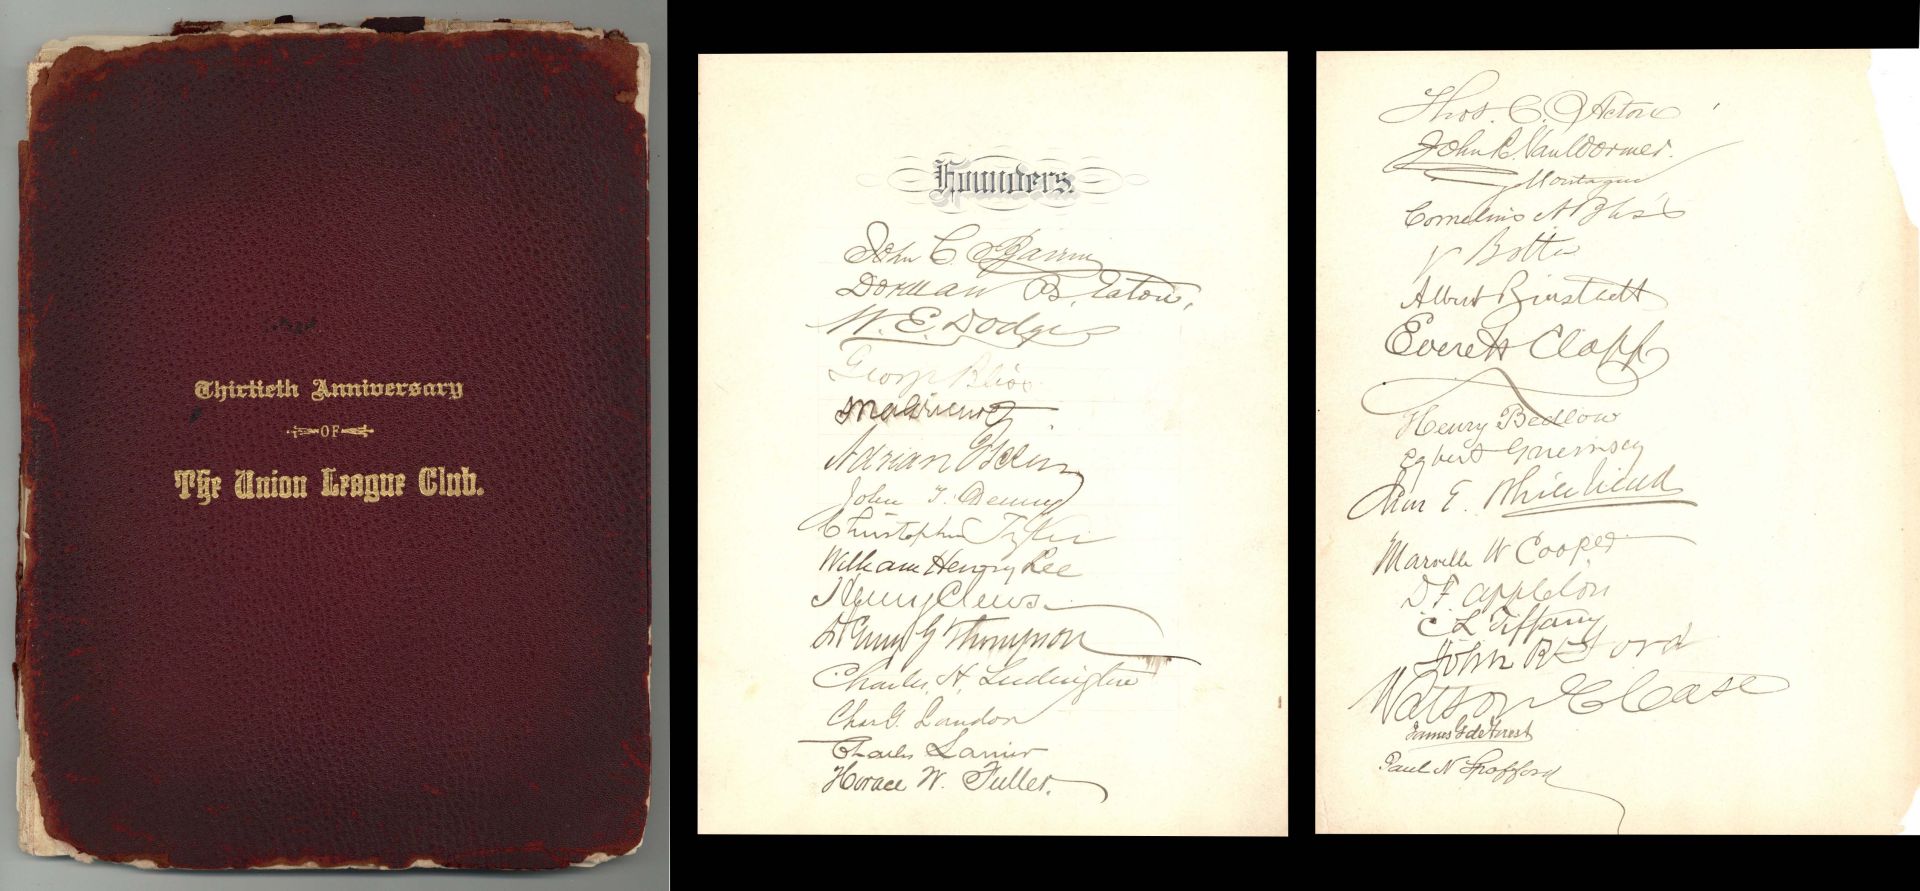 Thirtieth Anniversary
OF
The Union League Club.
Founders.
John C.
Dorman B. Eaton,
W. E. Dodge
George Bliss
Adrian Iselin
John T. Denny
Christopher
William Henry Lee
Henry Clews
Henry G Thompson
Charles H. Ludington
Chas G. Landon
Charles Lanier
Horace W. Fuller.
Thos. C. Acton
John R. VanWormer.
Montague
Cornelius N Bliss
V Botta
Albert Bierstadt
Everett Clapp
Henry Bedlow
Egbert Guernsey
E. Whitehead
Marvelle W Cooper
D. F. Appleton
C L Tiffany
John R Ford
Watson Case
James G de Forest
Paul N Spofford